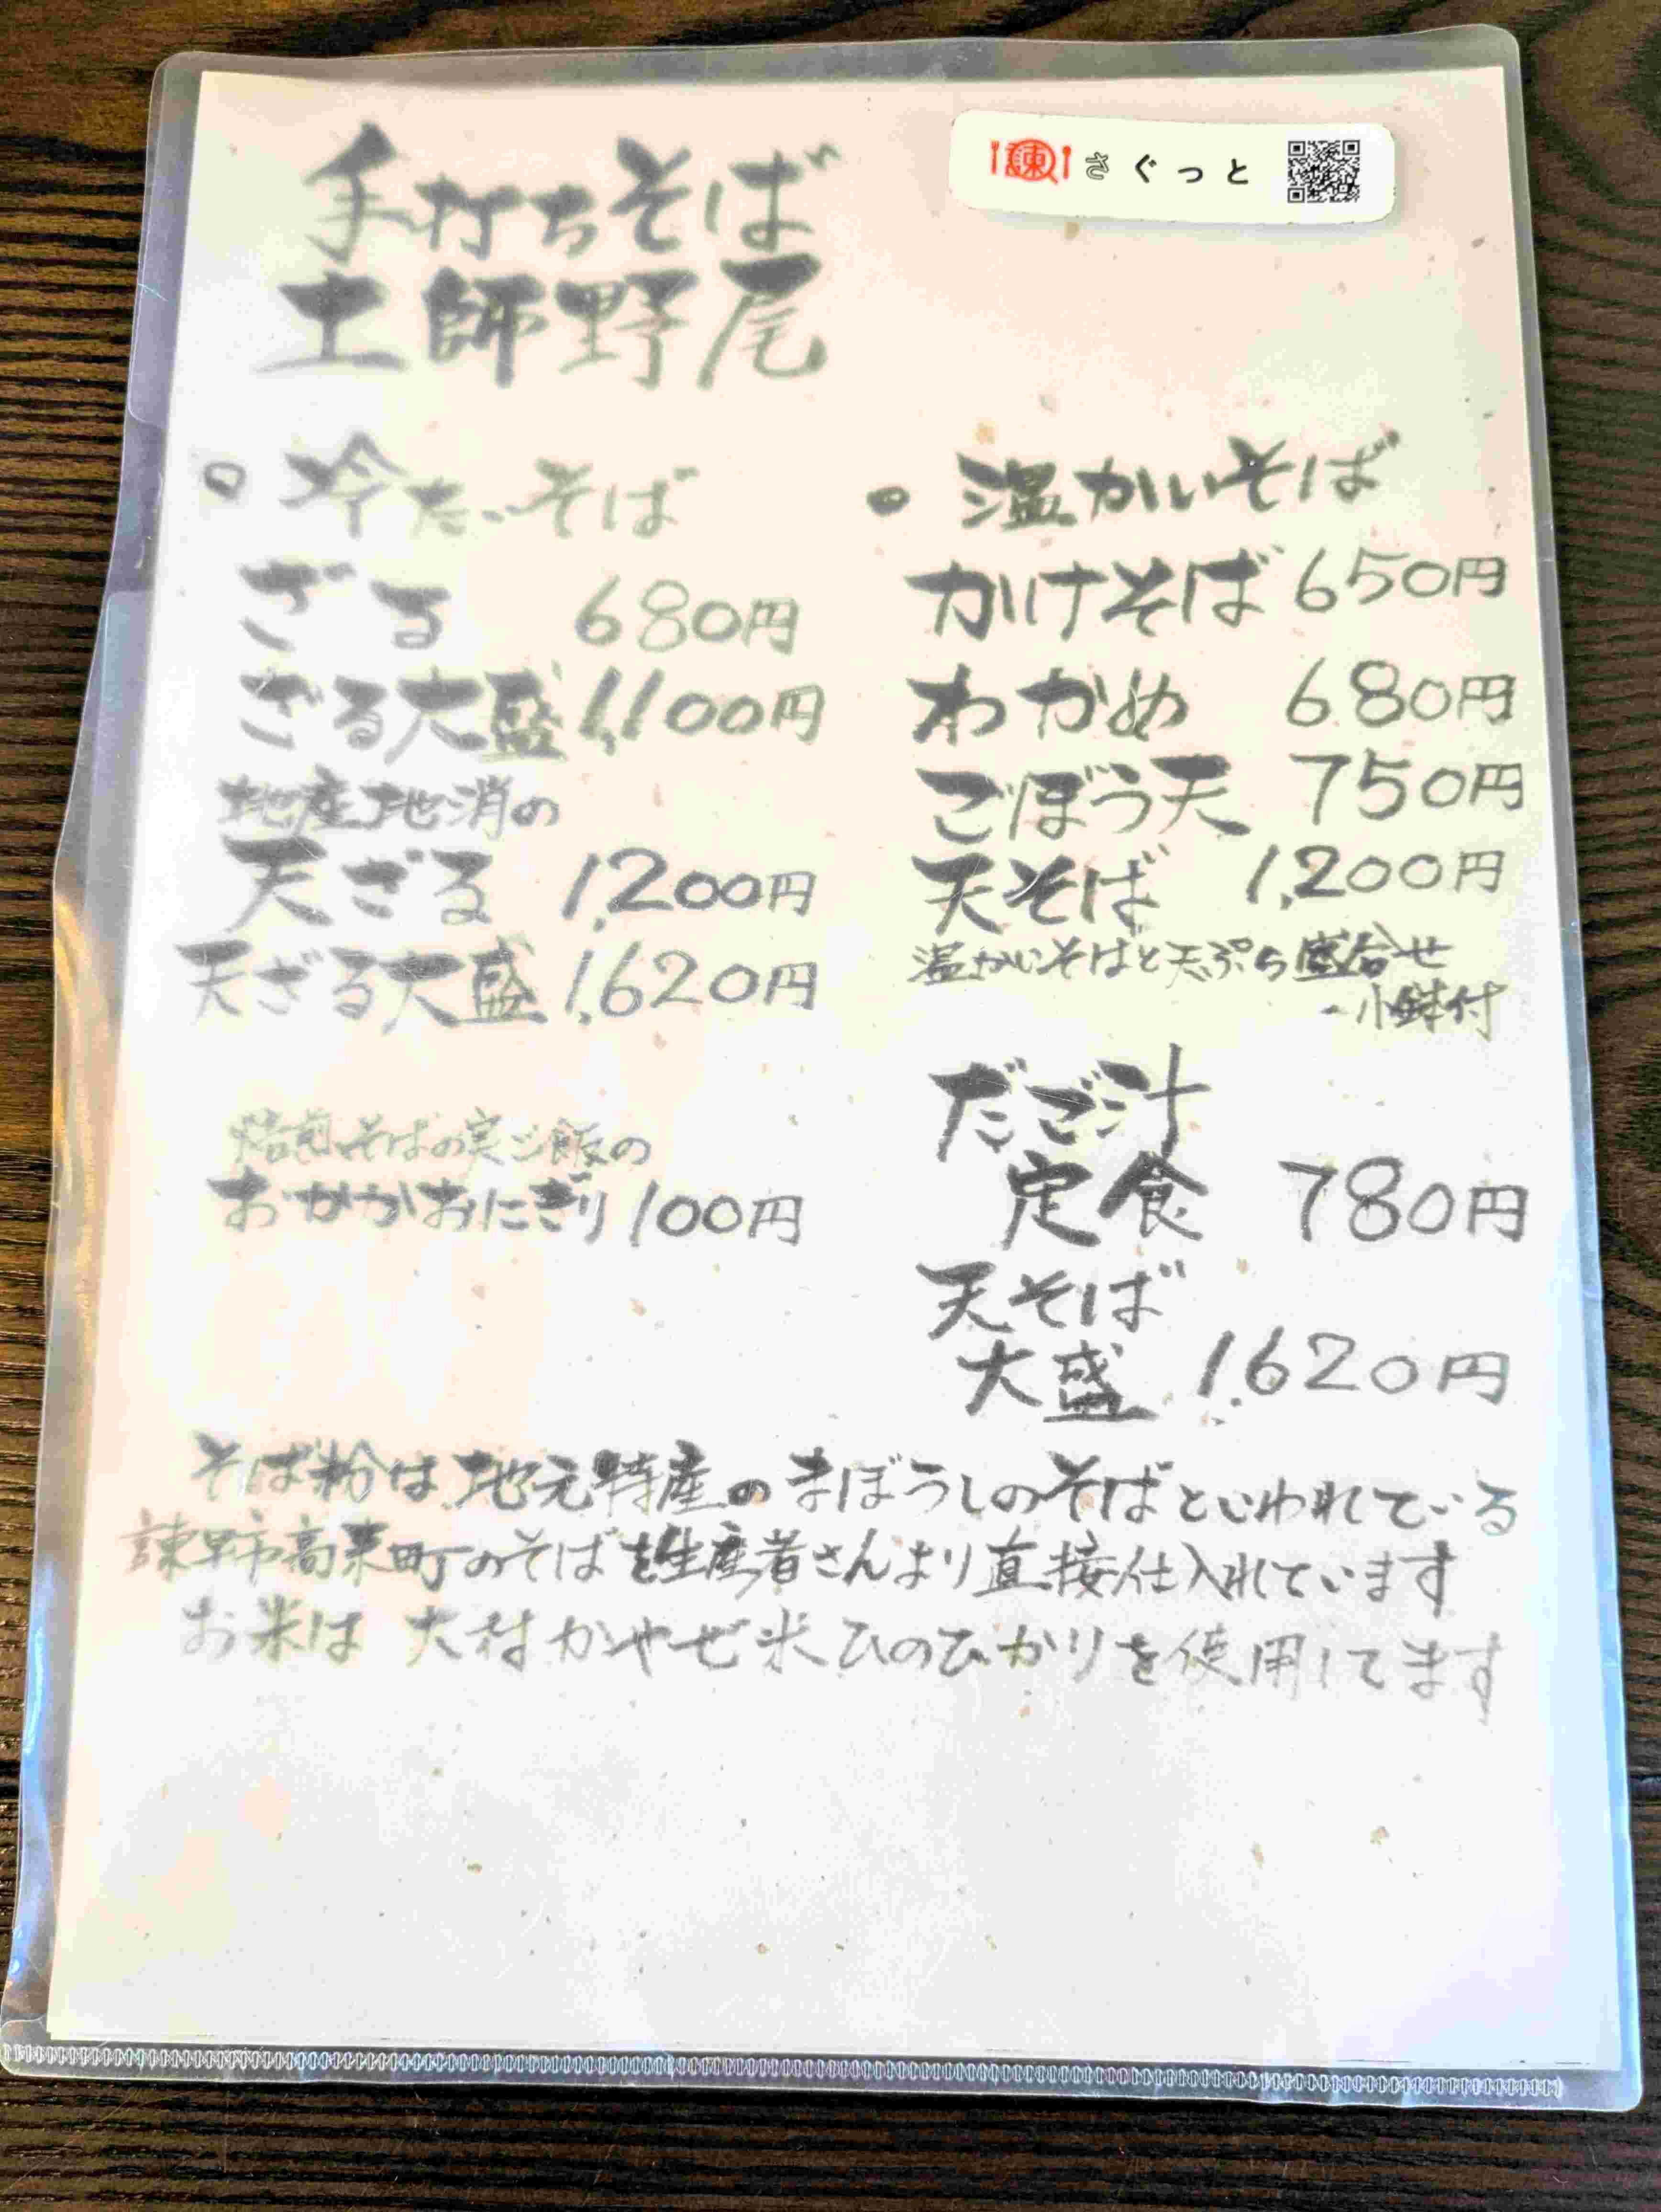 諫 さぐっと
手打ちそば
土師野尾
○ 冷たいそば
ざる 680円
ざる大盛 1,100円
地産地消の
天ざる 1,200円
天ざる大盛 1,620円
焙煎そばの実ご飯の
おかかおにぎり 100円
○ 温かいそば
かけそば 650円
わかめ 680円
ごぼう天 750円
天そば 1,200円
温かいそばと天ぷら盛合せ
-小鉢付
だご汁
定食 780円
天そば
大盛 1,620円
そば粉は地元特産のまぼろしのそばといわれている
諫早市高来町のそばを生産者さんより直接仕入れています
お米は 大村かやぜ米ひのひかりを使用してます